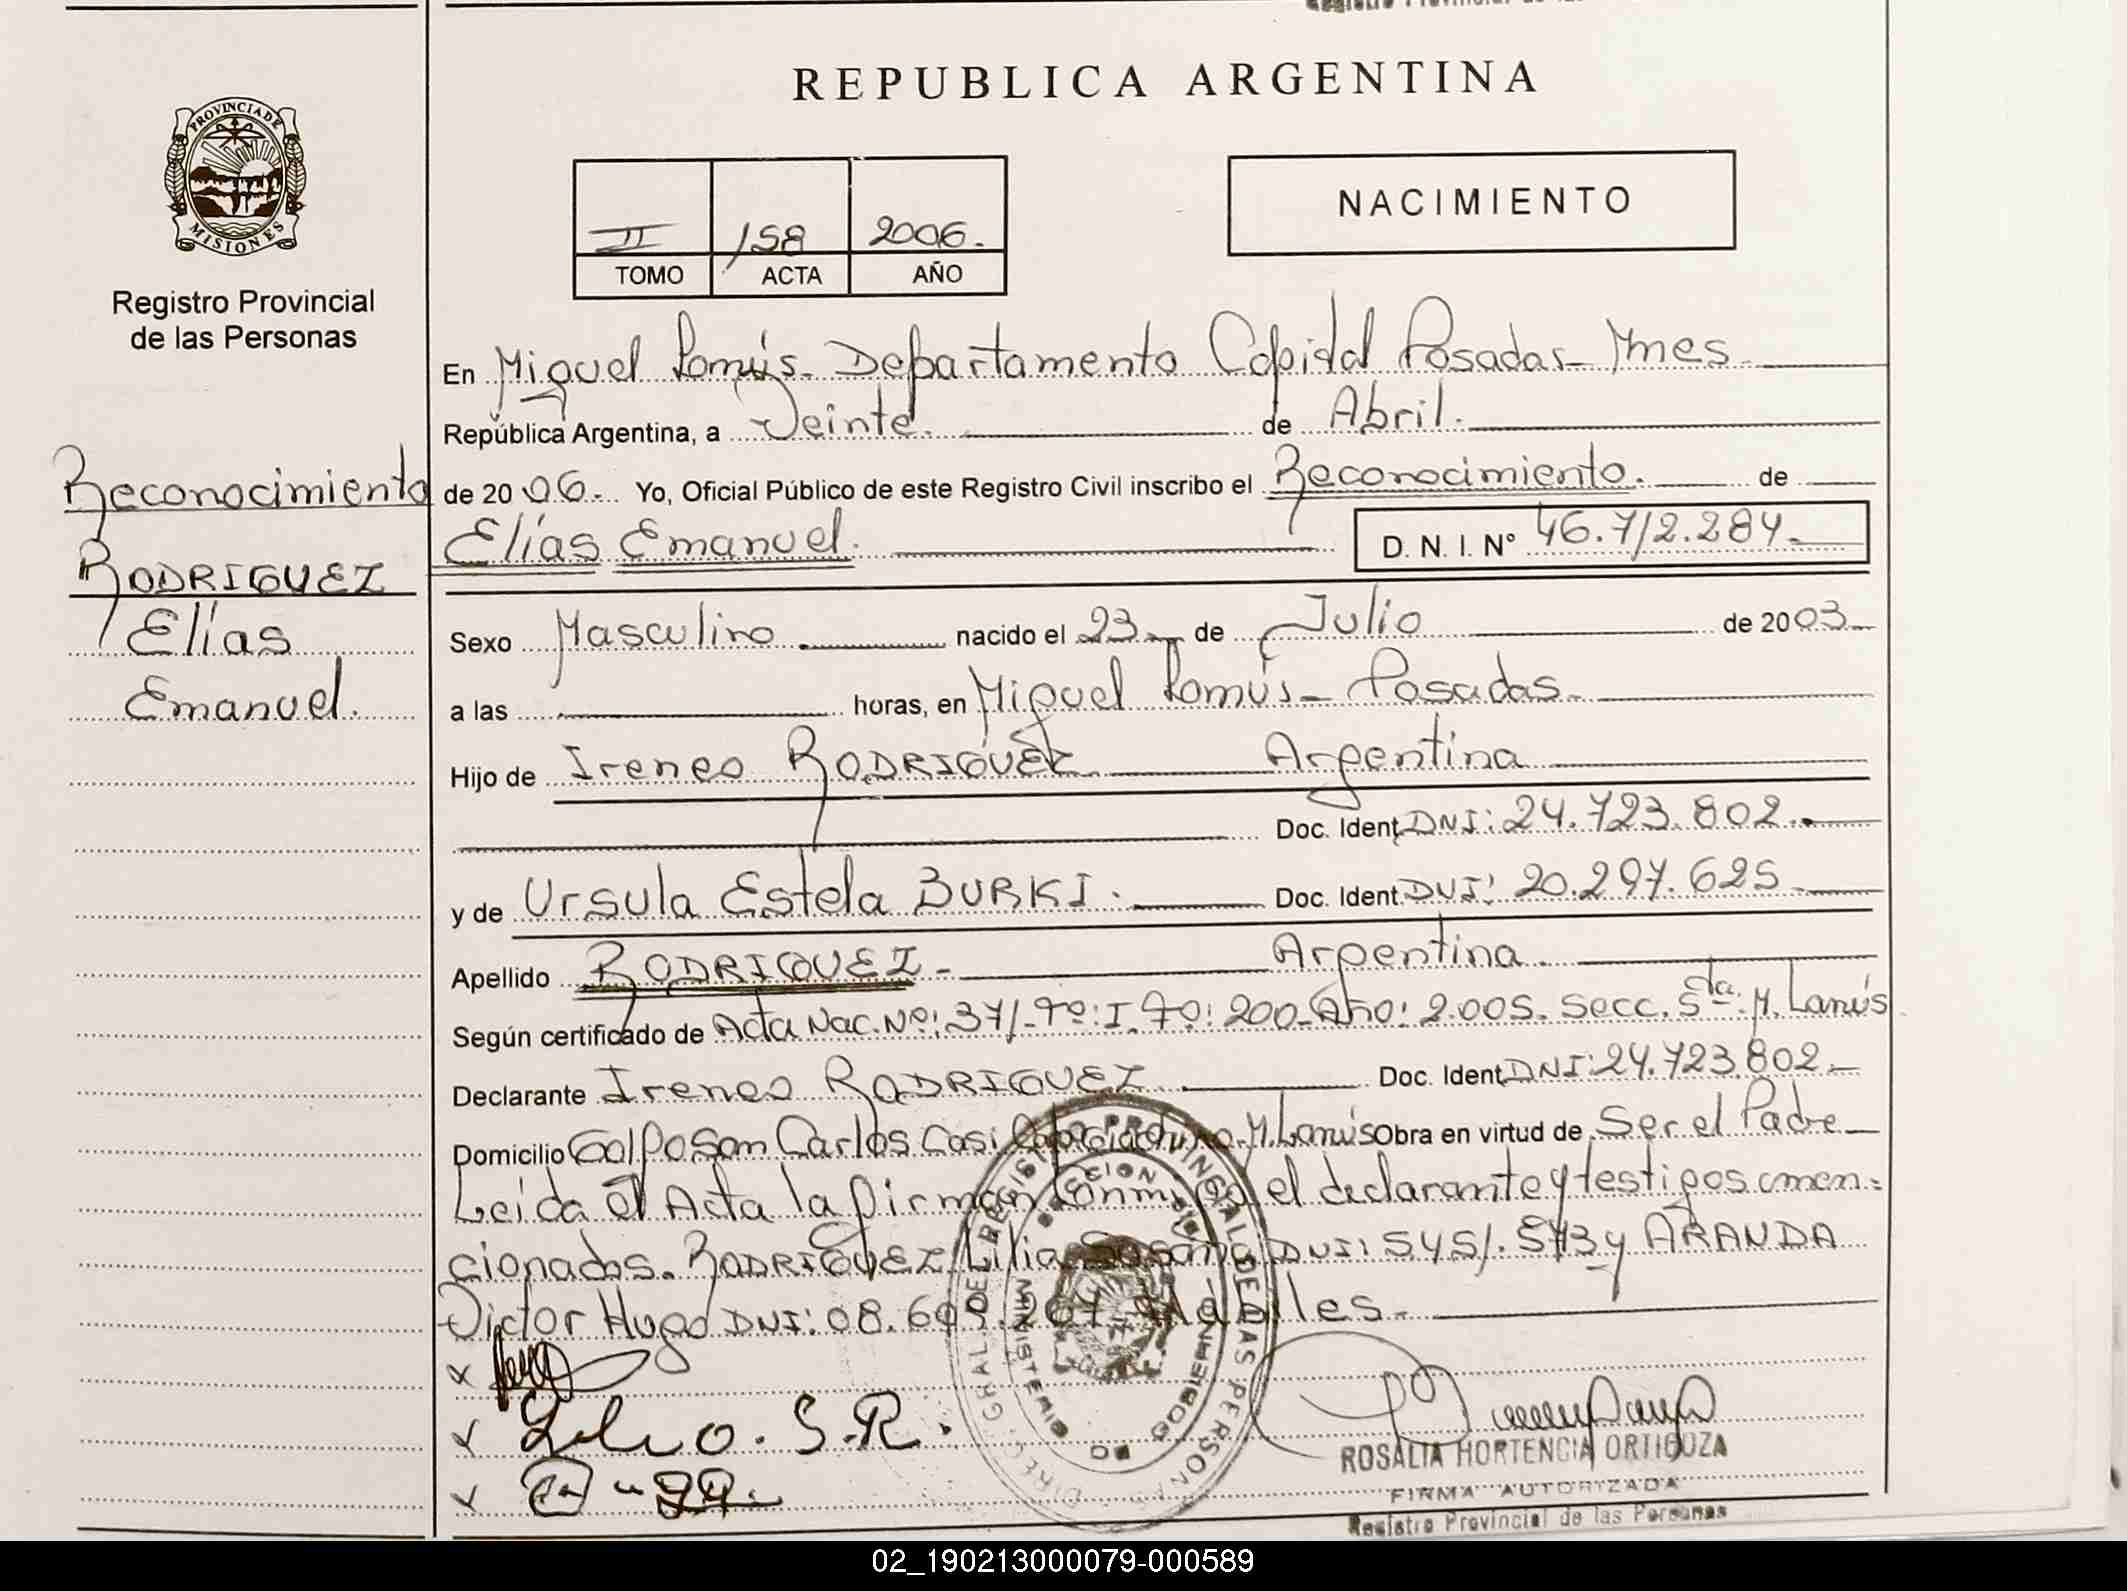 REPUBLICA ARGENTINA
PROVINCIA DE
MISIONES
Registro Provincial
de las Personas
NACIMIENTO
II 158 2006.
TOMO ACTA AÑO
En Miguel Lanús - Departamento Capital Posadas - Mnes
República Argentina, a Veinte. de Abril.
de 2006. Yo, Oficial Público de este Registro Civil inscribo el Reconocimiento. de
Elías Emanuel. D. N. I. Nº 46.712.284.
Reconocimiento
RODRIGUEZ
Elías
Emanuel.
Sexo Masculino nacido el 23 de Julio de 2003
a las horas, en Miguel Lanús - Posadas.
Hijo de Ireneo RODRIGUEZ Argentina
Doc. Ident. DNI: 24.723.802.
y de Ursula Estela BURKI. Doc. Ident. DNI: 20.297.625
Apellido RODRIGUEZ - Argentina.
Según certificado de Acta Nac. Nº: 371-Tº: I. Fº: 200-Año: 2.005. Secc. 5ta. M. Lanús
Declarante Ireneo RODRIGUEZ Doc. Ident. DNI: 24.723.802
Domicilio Golpo San Carlos M. Lanús Obra en virtud de Ser el Padre
Leida el Acta la firman conmigo el declarante y testigos
cionados. RODRIGUEZ Lilia Susana DNI: 5451.573 y ARANDA
Victor Hugo DNI: 08. hábiles.
DIREC. GRAL. DE REGISTRO PROVINCIAL DE LAS PERSONAS
MINISTERIO DE GOBIERNO
ROSALIA HORTENCIA ORTIGOZA
FIRMA AUTORIZADA
Registro Provincial de las Personas
02_190213000079-000589